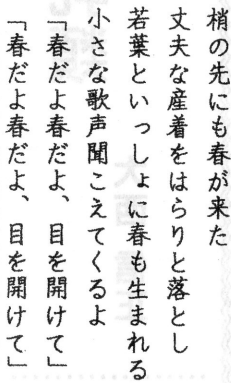 梢の先にも春が来た
丈夫な産着をはらりと落とし
若葉といっしょに春も生まれる
小さな歌声聞こえてくるよ
「春だよ春だよ、目を開けて」
「春だよ春だよ、目を開けて」